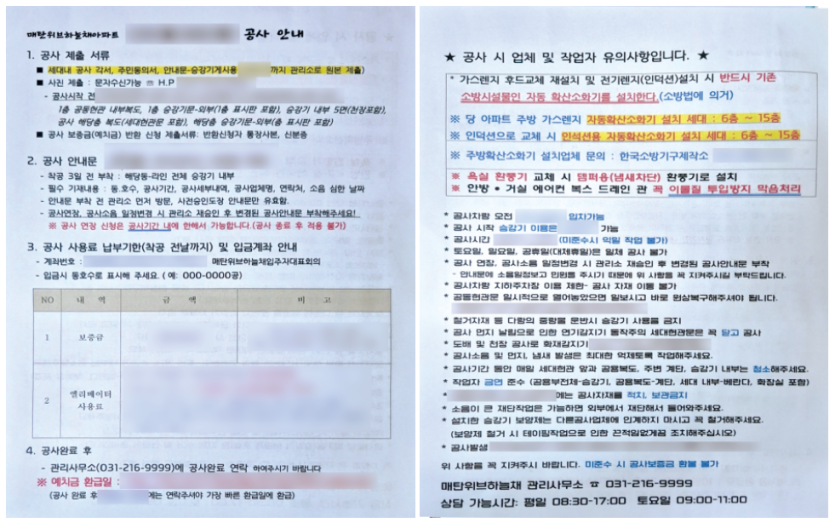 매탄위브하늘채아파트 공사 안내
1. 공사 제출 서류
■ 세대내 공사 각서, 주민동의서, 안내문-승강기게시용 까지 관리소로 원본 제출)
■ 사진 제출 : 문자수신가능 ☏ H.P
- 공사시작 전
1층 공동현관 내부복도, 1층 승강기문-외부(1층 표시판 포함), 승강기 내부 5면(천장포함),
공사 해당층 복도(세대현관문 포함), 해당층 승강기문-외부(층 표시판 포함)
■ 공사 보증금(예치금) 반환 신청 제출서류: 반환신청자 통장사본, 신분증
2. 공사 안내문
- 착공 3일 전 부착 : 해당동-라인 전체 승강기 내부
- 필수 기재내용 : 동.호수, 공사기간, 공사세부내역, 공사업체명, 연락처, 소음 심한 날짜
- 안내문 부착 전 관리소 먼저 방문, 사전승인도장 안내문만 유효함.
- 공사연장, 공사소음 일정변경 시 관리소 재승인 후 변경된 공사안내문 부착해주세요!
※ 공사 연장 신청은 공사기간 내에 한해서 가능합니다.(공사 종료 후 적용 불가)
3. 공사 사용료 납부기한(착공 전날까지) 및 입금계좌 안내
- 계좌번호 : 매탄위브하늘채입주자대표회의
- 입금시 동호수로 표시해 주세요. ( 예: 000-0000공)
NO 내 역 금 액 비 고
1 보증금
2 엘리베이터
사용료
4. 공사완료 후
- 관리사무소(031-216-9999)에 공사완료 연락 하여주시기 바랍니다
※ 예치금 환급일 :
(공사 완료 후 에는 연락주셔야 가장 빠른 환급일에 환급)
★ 공사 시 업체 및 작업자 유의사항입니다. ★
* 가스렌지 후드교체 재설치 및 전기렌지(인덕션)설치 시 반드시 기존
소방시설물인 자동 확산소화기를 설치한다.(소방법에 의거)
※ 당 아파트 주방 가스렌지 자동확산소화기 설치 세대 : 6층 ~ 15층
※ 인덕션으로 교체 시 인덕션용 자동확산소화기 설치 세대 : 6층 ~ 15층
※ 주방확산소화기 설치업체 문의 : 한국소방기구제작소
※ 욕실 환풍기 교체 시 댐퍼용(냄새차단) 환풍기로 설치
※ 안방・거실 에어컨 복스 드레인 관 꼭 이물질 투입방지 막음처리
* 공사차량 오전 입차가능
* 공사 시작 승강기 이용은 가능
* 공사시간 (미준수시 익일 작업 불가)
* 토요일, 일요일, 공휴일(대체휴일)은 일체 공사 불가
* 공사 연장, 공사소음 일정변경 시 관리소 재승인 후 변경된 공사안내문 부착
- 안내문에 소음일정보고 민원들 주시기 때문에 위 사항을 꼭 지켜주시길 부탁드립니다.
* 공사차량 지하주차장 이용 제한- 공사 자재 이동 불가
* 공동현관문 일시적으로 열어놓았으면 일보시고 바로 원상복구해주셔야 됩니다.
* 철거자재 등 다량의 중량물 운반시 승강기 사용을 금지
* 공사 먼지 날림으로 인한 연기감지기 동작주의 세대현관문은 꼭 닫고 공사
* 도배 및 천장 공사로 화재감지기
* 공사소음 및 먼지, 냄새 발생은 최대한 억제토록 작업해주세요.
* 공사기간 동안 매일 세대현관 앞과 공용복도, 주변 계단, 승강기 내부는 청소해주세요.
* 작업자 금연 준수 (공용부전체-승강기, 공용복도-계단, 세대 내부-베란다, 화장실 포함)
* 에는 공사자재를 적치, 보관금지
* 소음이 큰 재단작업은 가능하면 외부에서 재단해서 들어와주세요.
* 설치한 승강기 보양재는 다른공사업체에 인계하지 마시고 꼭 철거해주세요.
(보양재 철거 시 테이핑작업으로 인한 끈적임없게끔 조치해주십시오)
* 공사발생
위 사항을 꼭 지켜주시 바랍니다. 미준수 시 공사보증금 환불 불가
매탄위브하늘채 관리사무소 ☎ 031-216-9999
상담 가능시간: 평일 08:30-17:00 토요일 09:00-11:00